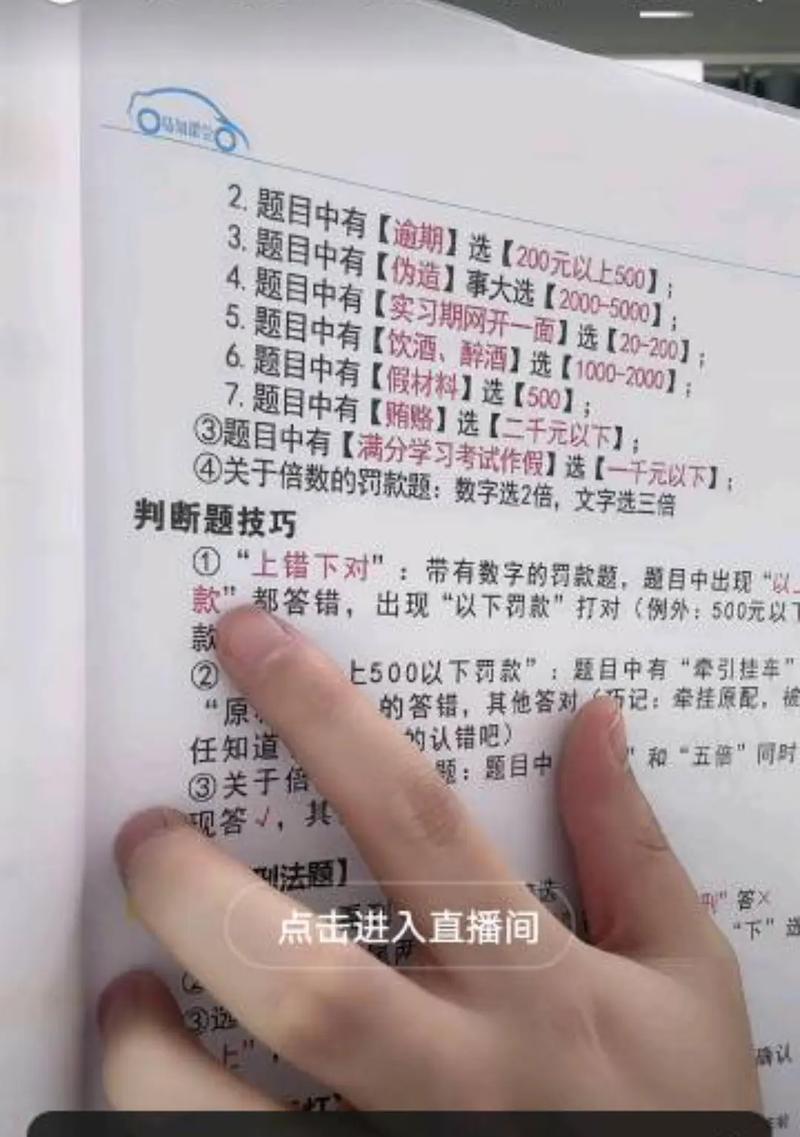 2. 题目中有【逾期】选【200元以上500】;
3. 题目中有【伪造】事大选【2000-5000】;
4. 题目中有【实习期网开一面】选【20-200】;
5. 题目中有【饮酒、醉酒】选【1000-2000】;
6. 题目中有【假材料】选【500】;
7. 题目中有【贿赂】选【二千元以下】;
③题目中有【满分学习考试作假】选【一千元以下】;
④关于倍数的罚款题: 数字选2倍, 文字选三倍
判断题技巧
①“上错下对”: 带有数字的罚款题, 题目中出现“以
款”都答错, 出现“以下罚款”打对(例外: 500元以下
款
② 上500以下罚款”: 题目中有“牵引挂车”
“原 的答错, 其他答对 记: 牵挂原配, 被
任知道 的认错吧)
③关于倍 题: 题目中 ”和“五倍”同时
现答√, 其
刑法题】
选
答×
“下”选
点击进入直播间
③
上”,
确认